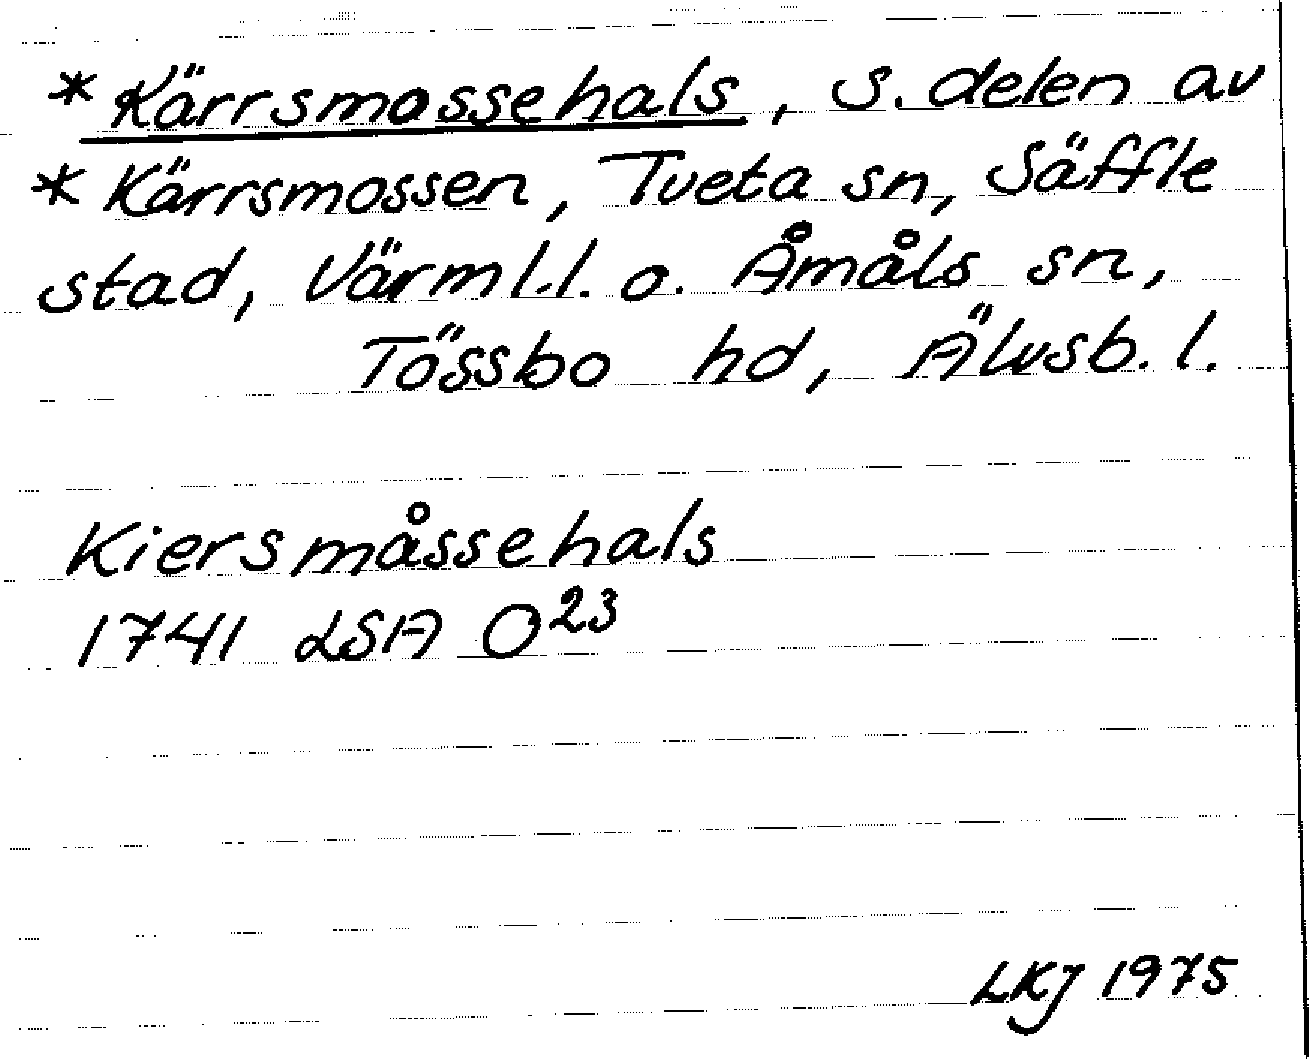 *Kärrsmossehals, s. delen av
*Kärrsmossen, Tveta sn, Säffle
stad, Värml.l. o. Åmåls sn,
Tössbo hd, Älvsb. l.
Kiersmåssehals
1741 LSA O23
LKJ 1975